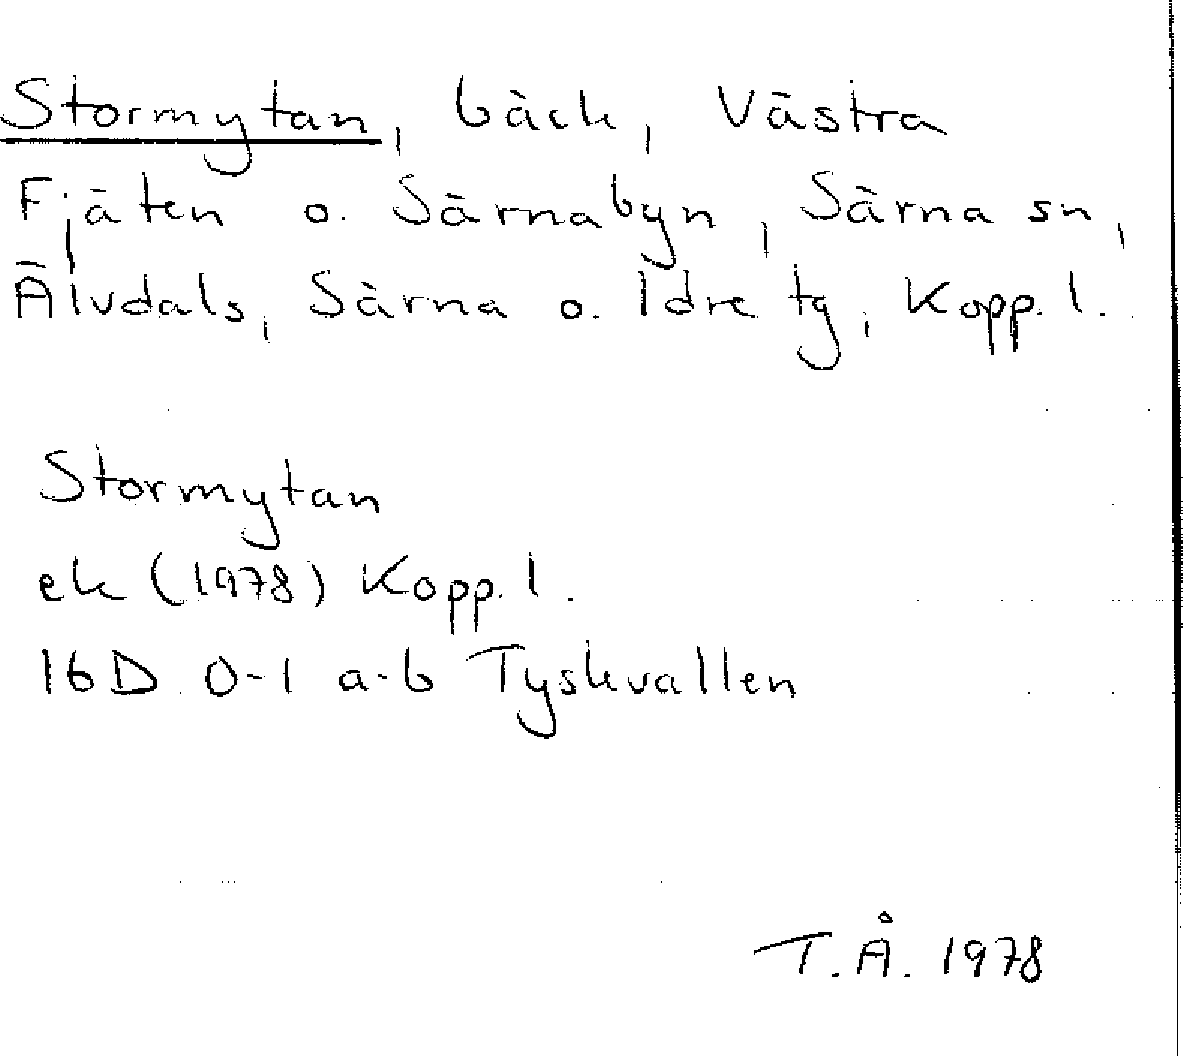 Stormytan, bäck, Västra
Fjäten o. Särnabyn, Särna sn,
Älvdals, Särna o. Idre tg, Kopp. l.
Stormytan
ek (1978) Kopp. l.
16D 0-1 a-b Tyskvallen
T.Å. 1978